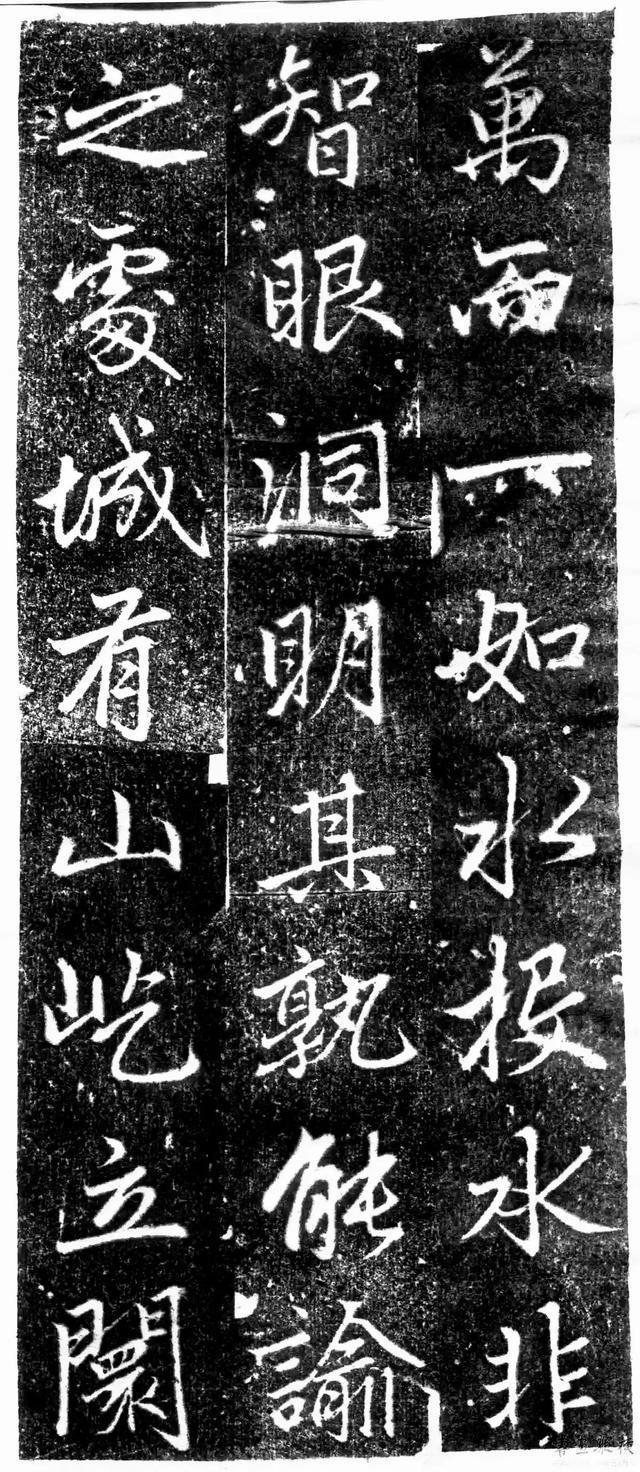 萬而一如水投水非
智眼洞明其孰能諭
之處城有山屹立闤